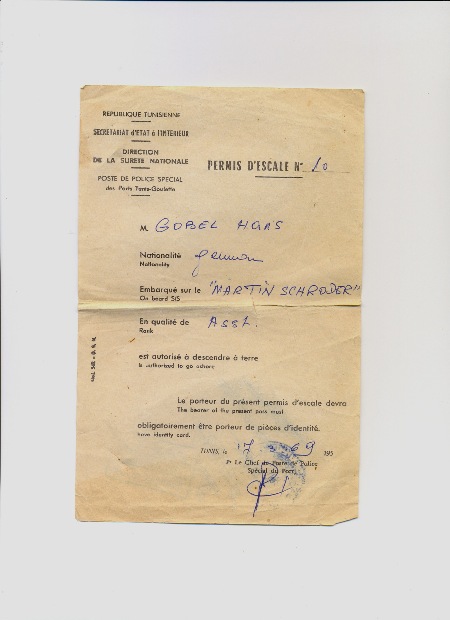 REPUBLIQUE TUNISIENNE
SECRÉTARIAT d'ETAT à l'INTERIEUR
DIRECTION
DE LA SURETE NATIONALE
POSTE DE POLICE SPECIAL
des Ports Tunis-Goulette
PERMIS D'ESCALE N° 10
M. GOBEL HANS
Nationalité German
Nationality
Embarqué sur le "MARTIN SCHRÖDER"
On board S/S
En qualité de Asst.
Rank
est autorisé à descendre à terre
is authorized to go ashore
Le porteur du présent permis d'escale devra
The bearer of the present pass must
obligatoirement être porteur de pièces d'identité.
have identity card.
TUNIS, le 69 195
Pr Le Chef du Poste de Police
Spécial du Port